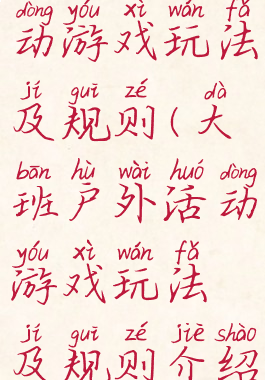 dòng yóu xì wán fǎ
动游戏玩法
jí guī zé dà
及规则(大
bān hù wài huó dòng
班户外活动
yóu xì wán fǎ
游戏玩法
jí guī zé jiè shào
及规则介绍